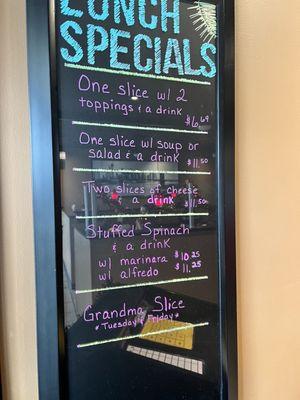 LUNCH
SPECIALS
One slice w/ 2
toppings & a drink
$6.69
One slice w/ soup or
salad & a drink $11.50
Two slices of cheese
& a drink $11.50
Stuffed Spinach
& a drink
w/ marinara $10.25
w/ alfredo $11.25
Grandma Slice
*Tuesday & Friday*